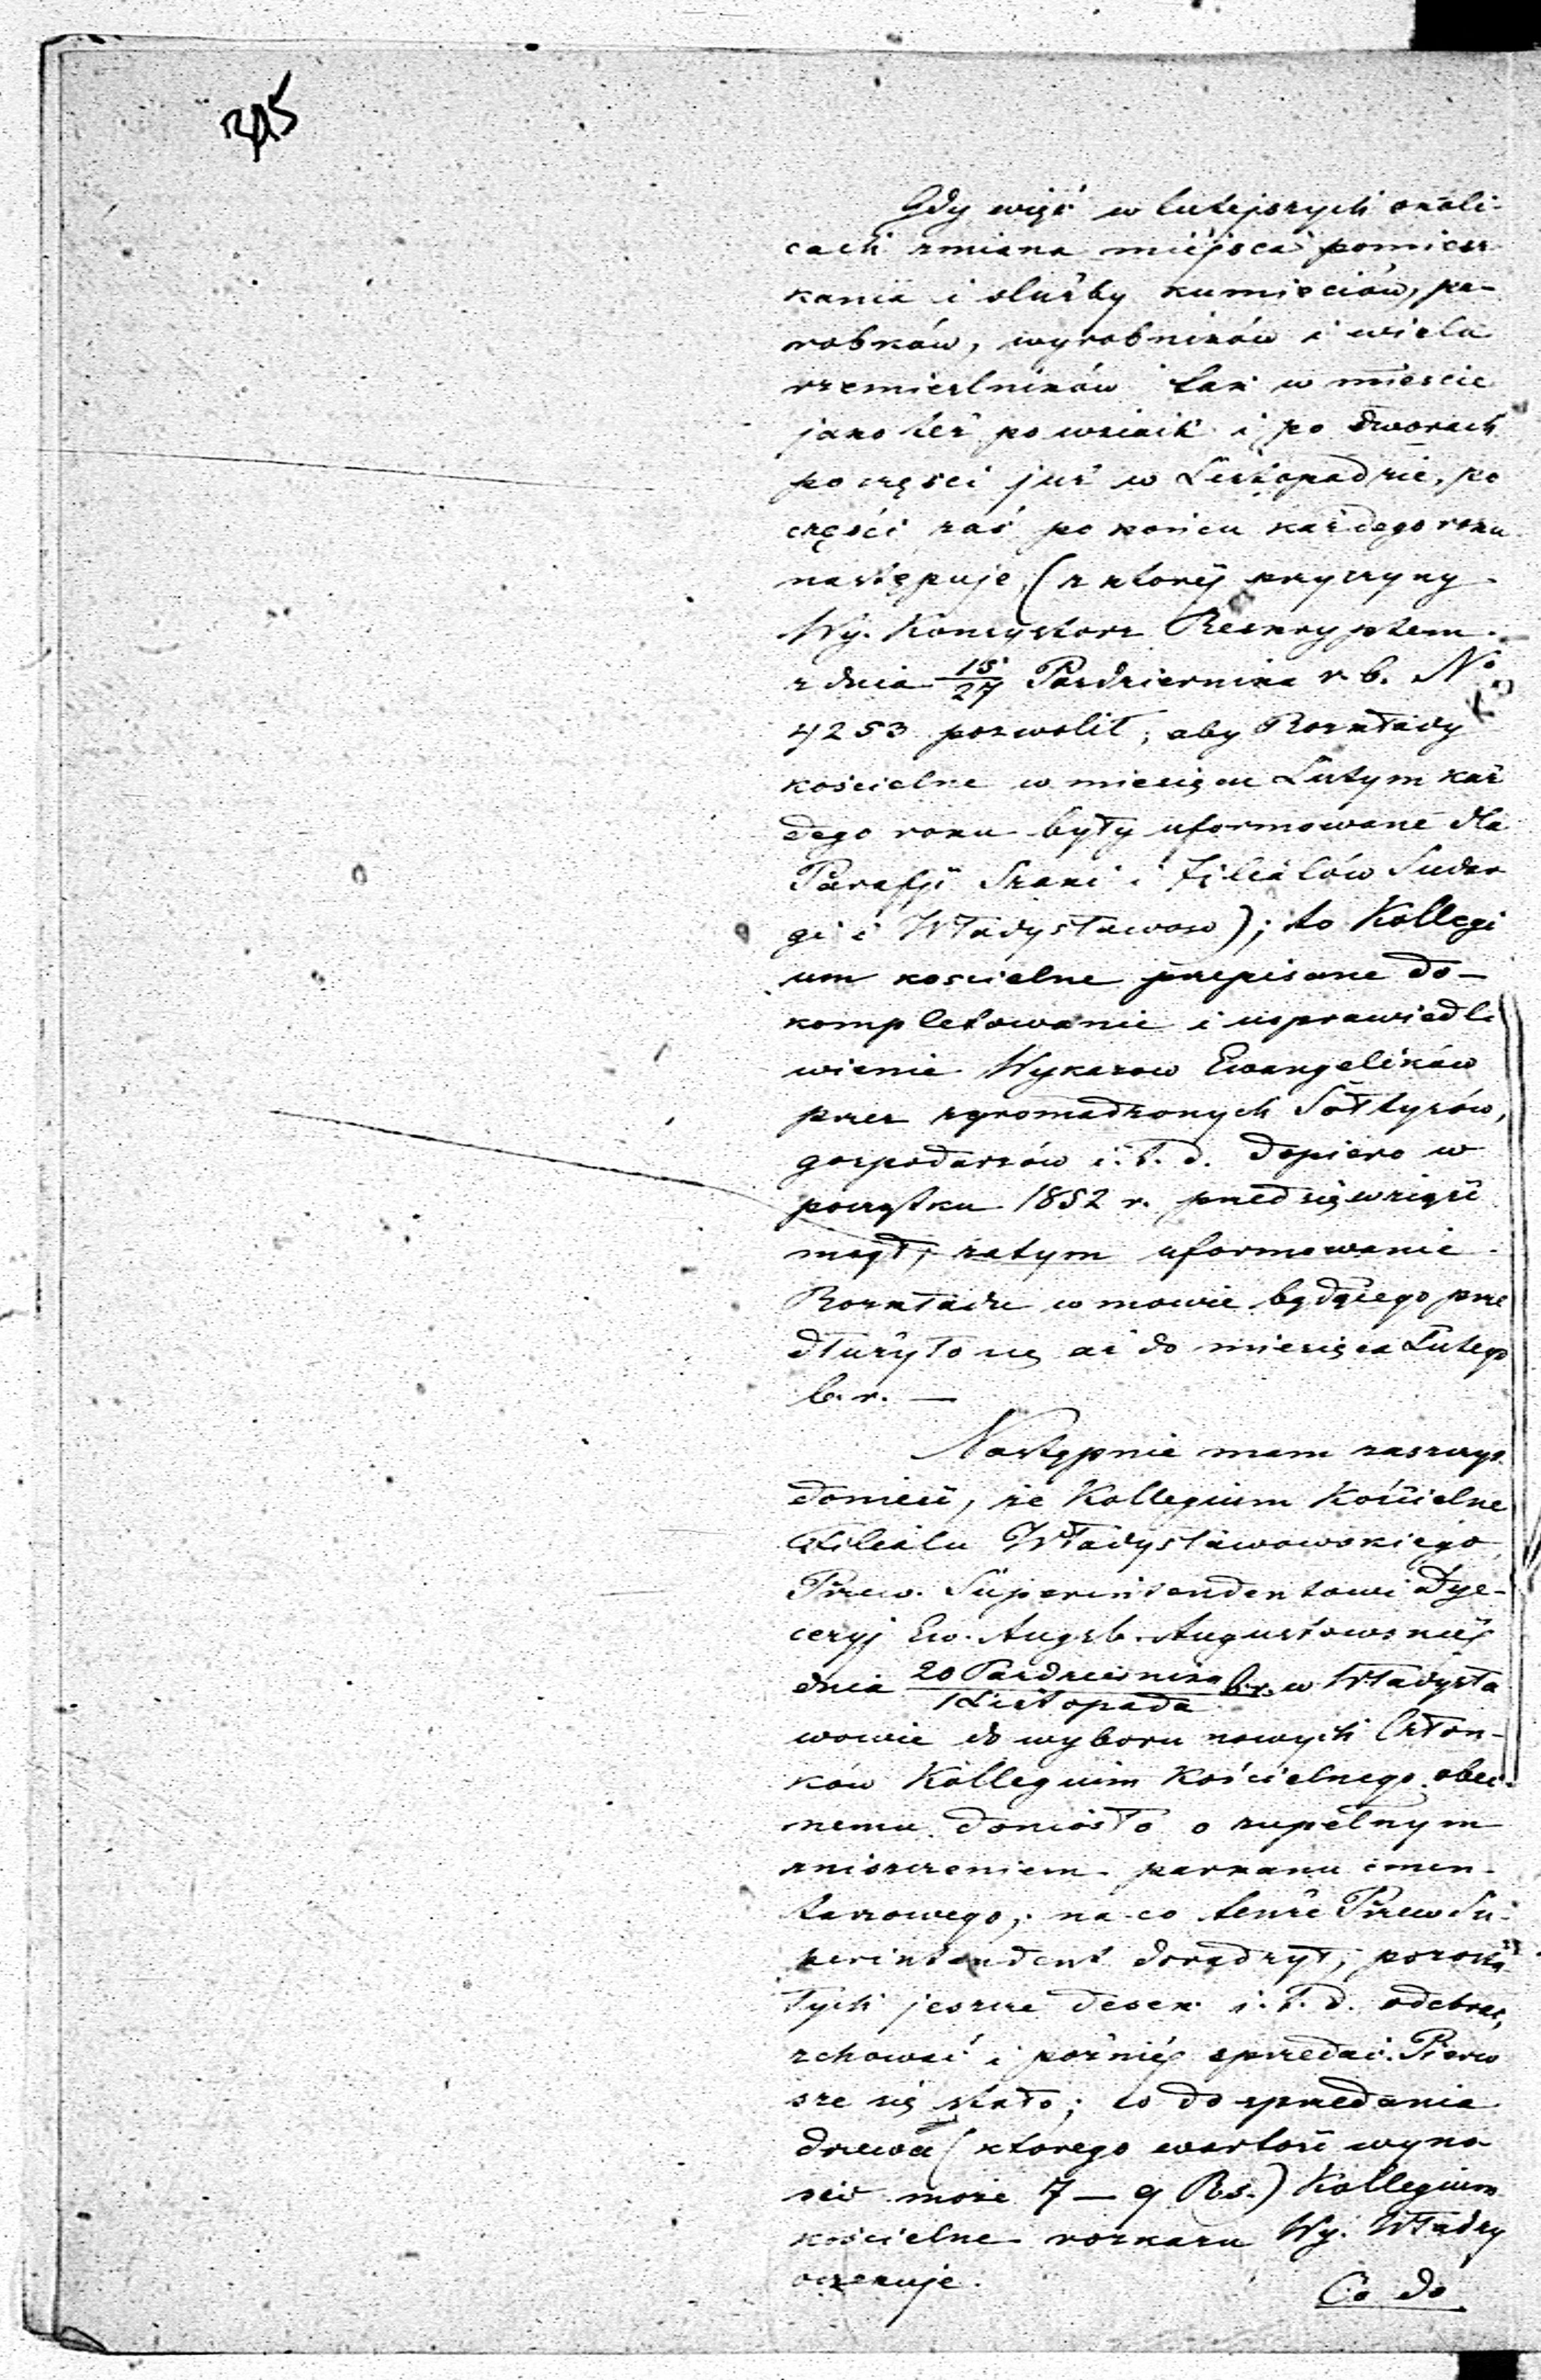 315
Gdy więc w tutejszych okoli-
cach zmiana miejsca pomiesz
kania i służby kumieciów, pa-
robków, wyrobników i wielu
rzemieslników tak w miescie
jako też po wsiach i po dworach
po części już w Listopadzie, po
części zaś po końcu każdego roku
następuje, (z której przyczyny
Wy. Konsystorz Reskryptem
z dnia 15/27 Pazdziernika r. b. No
4253 pozwolił, aby Rozkłady
kościelne w miesiącu Lutym każ
dego roku były uformowane dla
Parafji Szaki i Filiałów Sudar
gi i Władysławow); to Kollegi
um koscielne przepisane do-
kompletowanie i usprawiedli
wienie Wykazow Ewangelików
przez zgromadzonych Sołtysów,
gospodarzów i. t. d. dopiero w
początku 1852 r. przedsięwziąść
mogł, zatym uformowanie
Rozkładu w mowie będącego prze
dłużyło się aż do miesiąca Lutego
b. r. —
Następnie mam zaszczyt
donieść, że Kollegium Kościelne
Filiału Władysławowskiego
Przew. Superintendentowi Dye-
cezyj Ew. Augsb. Augustowskiej
dnia 20 Pazdziernika/1 Listopada b. r. w Władysła
wowie do wyboru nowych Człon-
ków Kollegium Kościelnego obec-
nemu doniosło o zupełnym
zniszczeniem parkanu cmen-
tarzowego; na co tenże Przew Su-
perintendent doradzył, pozosta
łych jeszcze desek i. t. d. odebrać,
zchować i poźniéj sprzedać. Pierw
sze się stało; co do sprzedania
drzewa (którego wartość wyno-
sić może 7 — 9 Rs.) Kollegium
koscielne rozkazu Wy. Władzy
oczekuje.
Co do